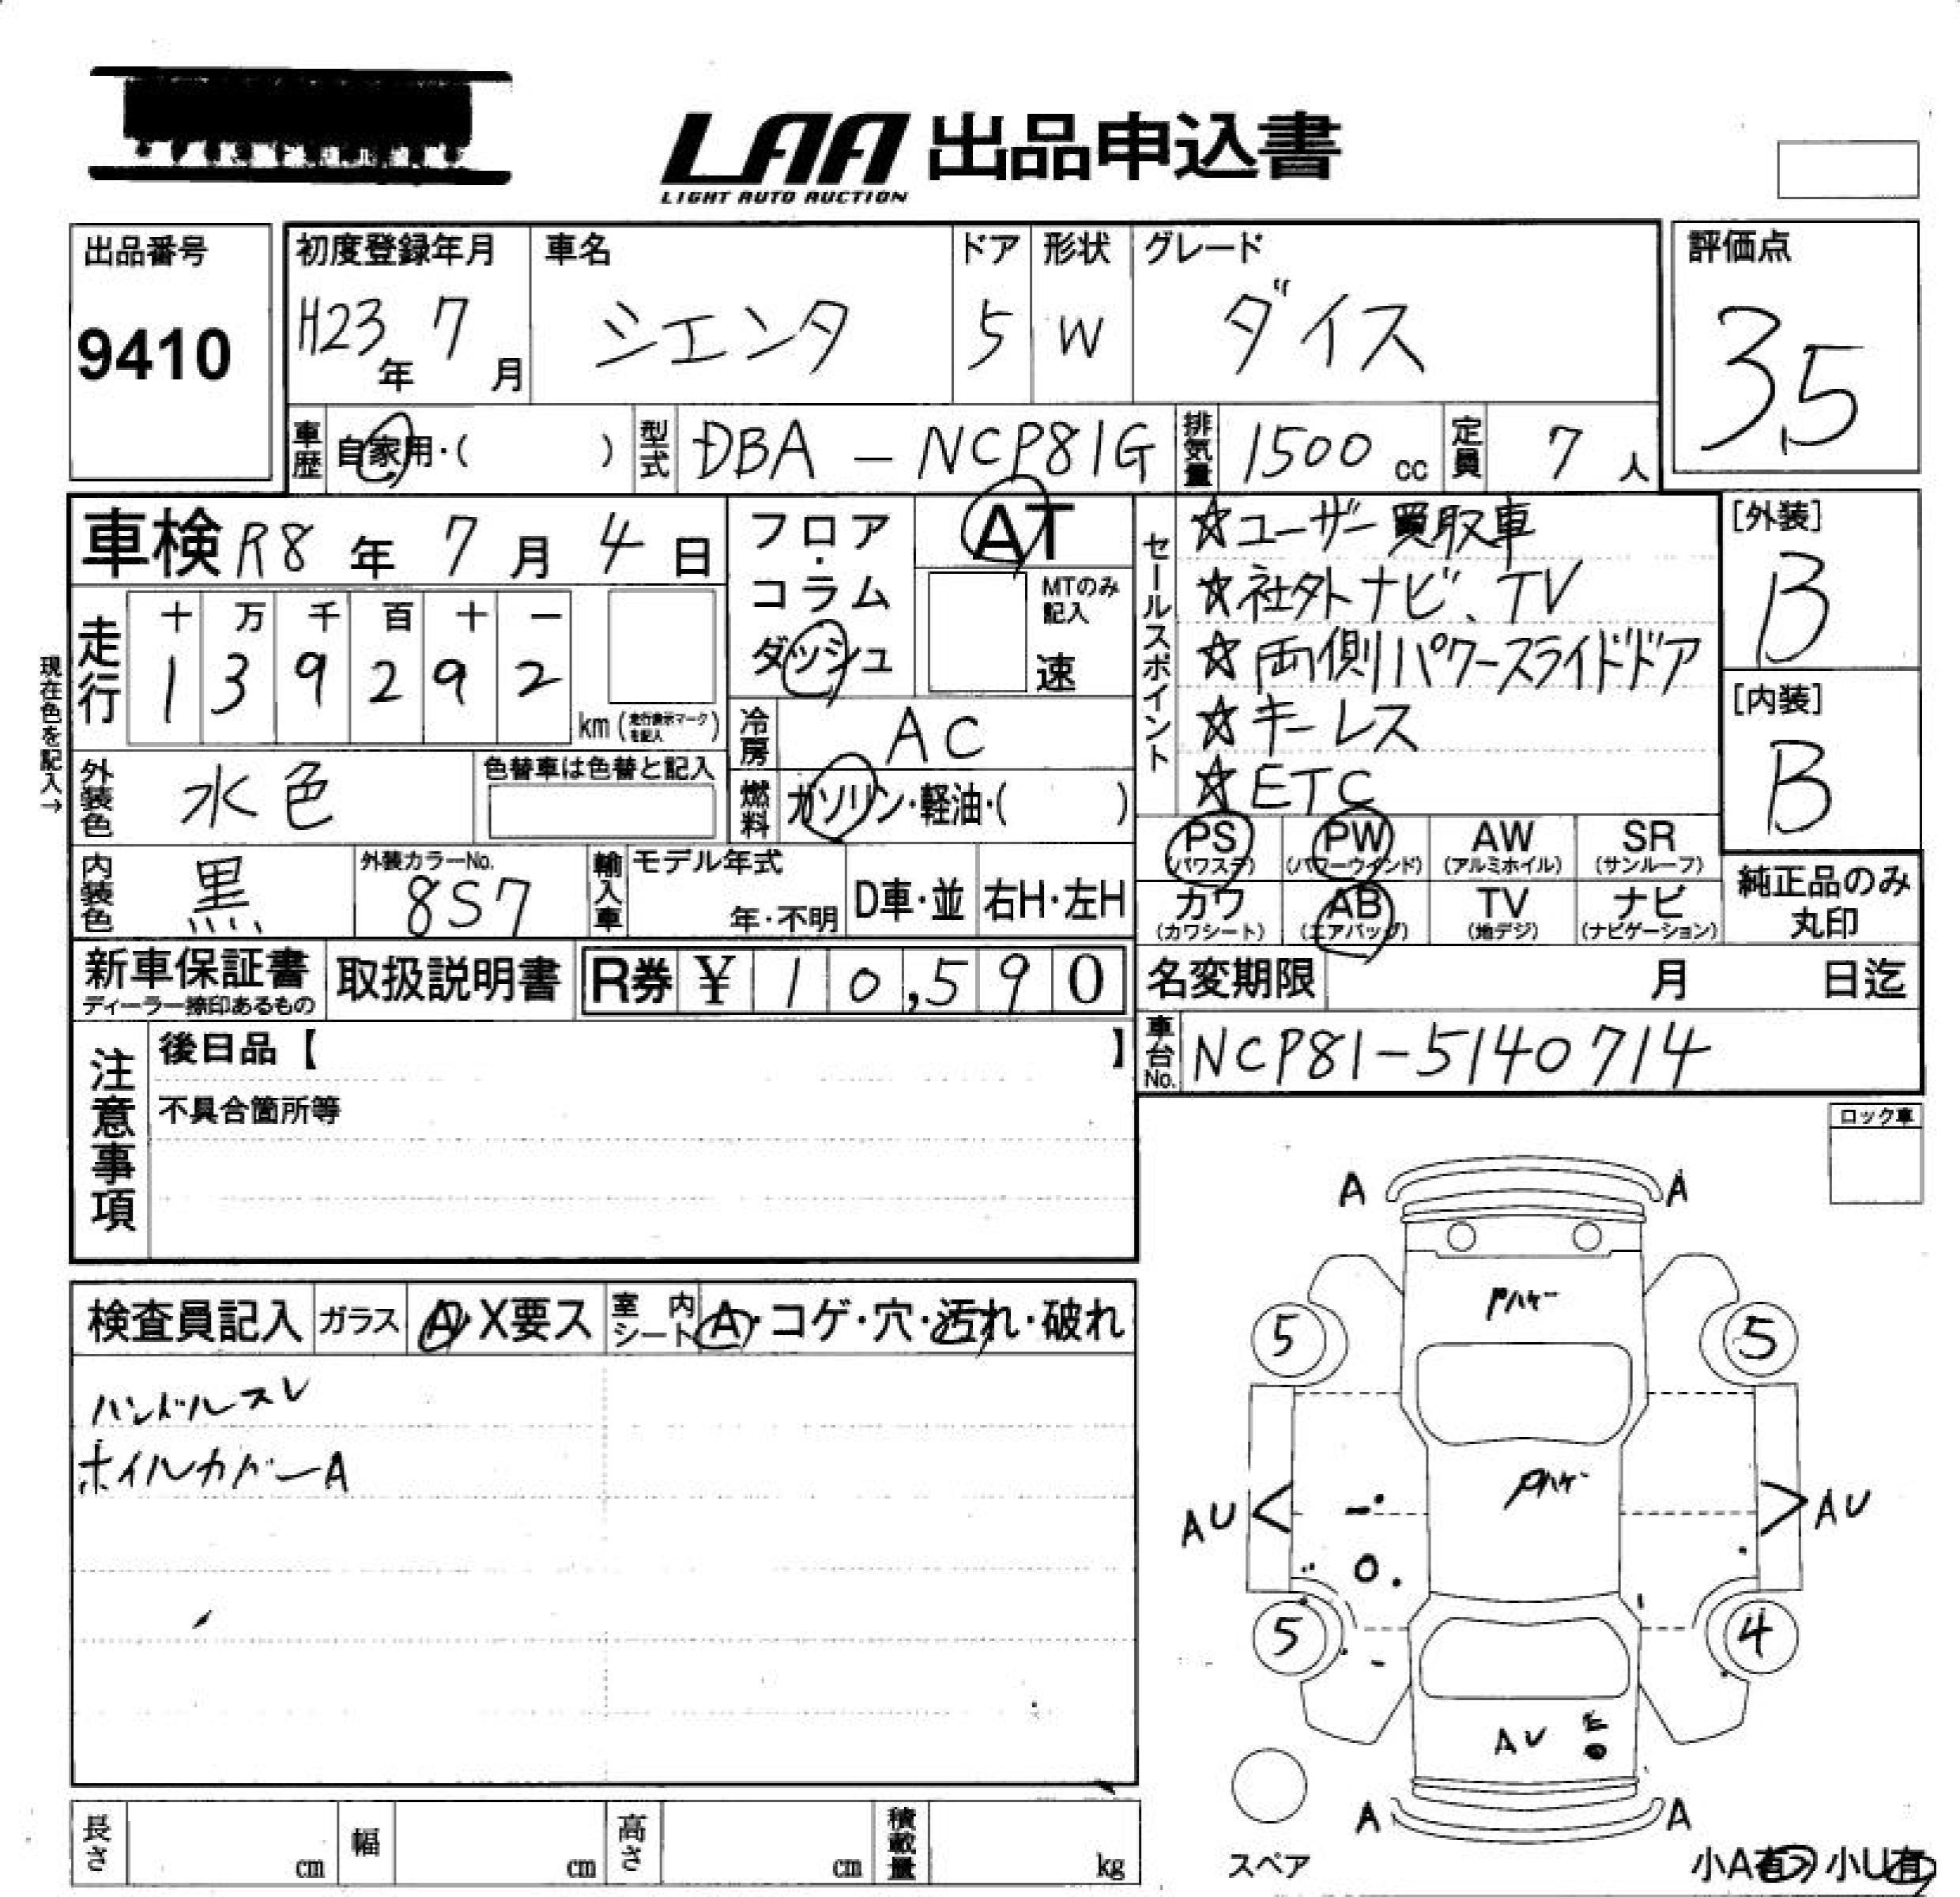 LAA 出品申込書
LIGHT AUTO AUCTION
出品番号
9410
初度登録年月
H23年 7月
車名
シエンタ
ドア
5
形状
W
グレード
ダイス
評価点
3.5
車歴
自家用・( )
型式
DBA - NCP81G
排気量
1500 cc
定員
7 人
車検 R8 年 7 月 4 日
走行
十 万 千 百 十 一
1 3 9 2 9 2
km (走行表示マークを記入)
現在色を記入→
フロア・コラム
ダッシュ
AT
MTのみ記入
速
冷房
AC
燃料
ガソリン・軽油・( )
外装色
水色
色替車は色替と記入
内装色
黒
外装カラーNo.
8S7
輸入車
モデル年式
年・不明
D車・並
右H・左H
セールスポイント
☆ユーザー買取車
☆社外ナビ、TV
☆両側パワースライドドア
☆キーレス
☆ETC
[外装]
B
[内装]
B
PS (パワステ)
PW (パワーウインド)
AW (アルミホイル)
SR (サンルーフ)
カワ (カワシート)
AB (エアバッグ)
TV (地デジ)
ナビ (ナビゲーション)
純正品のみ丸印
新車保証書
ディーラー捺印あるもの
取扱説明書
R券 ¥ 10,590
名変期限 月 日迄
車台No.
NCP81-5140714
注意事項
後日品【 】
不具合箇所等
ロック車
検査員記入
ガラス
A・X要ス
室内シート
A・コゲ・穴・汚れ・破れ
ハンドルスレ
ホイルカバーA
A A
Pハゲ
5 5
Pハゲ
AU AU
5 4
AU
A A
スペア
小A有 小U有
長さ cm
幅 cm
高さ cm
積載量 kg